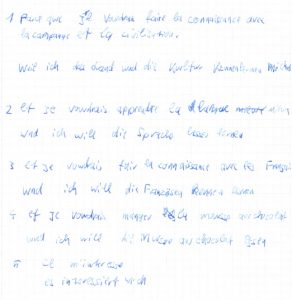 1 Parce que je voudrais faire la connaissance avec
la campagne et la civilisation.
Weil ich das Land und die Kultur kennenlernen möchte
2 et je voudrais apprendre la
und ich will die Sprache besser lernen
3 et je voudrais fair la connaissance avec les Françai
und ich will die Französen kennen lernen
4 et je voudrais manger mousse au chocolat
und ich will die Mousse au chocolat essen
5 il m'interesse
es interessiert mich